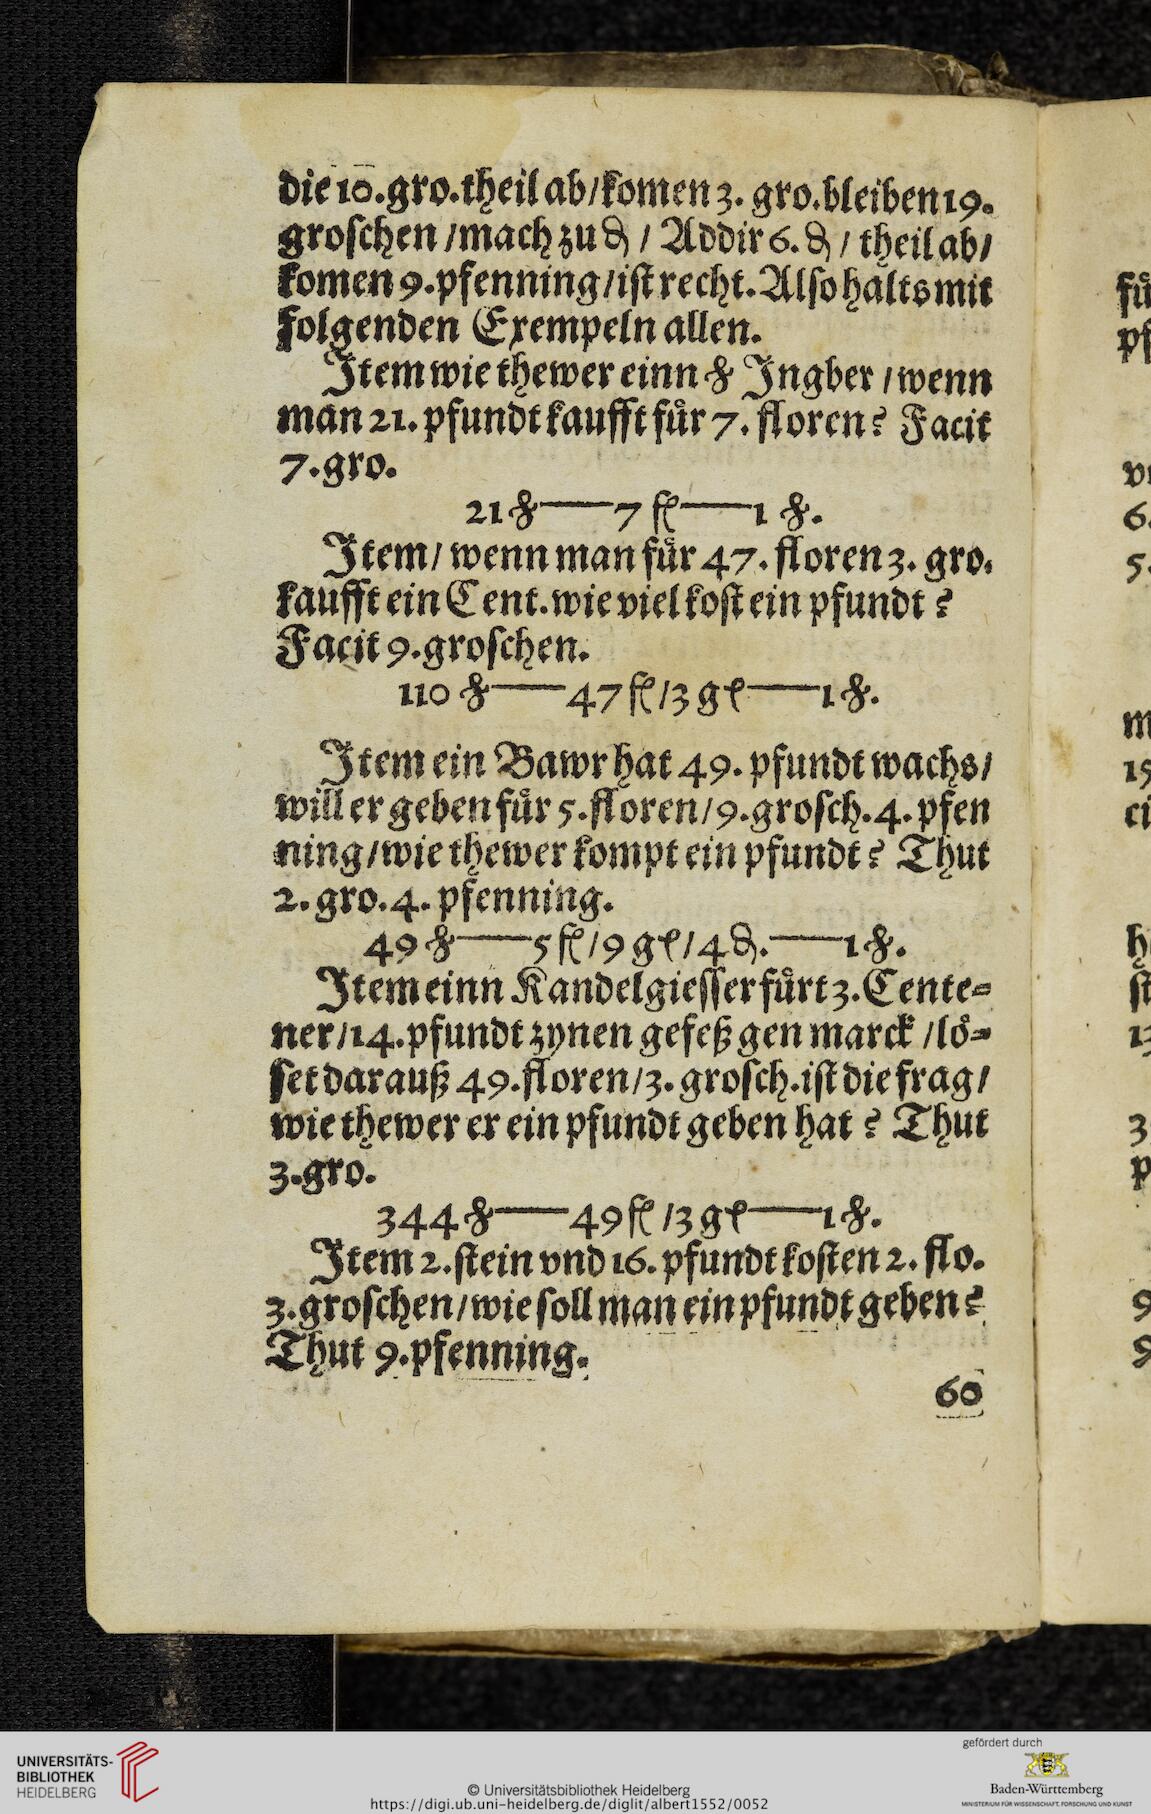 die 10. gro. theil ab / komen 3. gro. bleiben 19.
groschen / mach zu ₰ / Addir 6. ₰ / theil ab /
komen 9. pfenning / ist recht. Also halts mit
folgenden Exempeln allen.
Item wie thewer einn ℔ Ingber / wenn
man 21. pfundt kaufft fuͤr 7. floren? Facit
7. gro.
21 ℔ — 7 fl — 1 ℔.
Item / wenn man fuͤr 47. floren 3. gro.
kaufft ein Cent. wie viel kost ein pfundt?
Facit 9. groschen.
110 ℔ — 47 fl / 3 gl — 1 ℔.
Item ein Bawr hat 49. pfundt wachs /
will er geben fuͤr 5. floren / 9. grosch. 4. pfen
ning / wie thewer kompt ein pfundt? Thut
2. gro. 4. pfenning.
49 ℔ — 5 fl / 9 gl / 4 ₰. — 1 ℔.
Item einn Kandelgiesser fuͤrt 3. Cente=
ner / 14. pfundt zynen gefeß gen marck / loͤ=
set darauß 49. floren / 3. grosch. ist die frag /
wie thewer er ein pfundt geben hat? Thut
3. gro.
344 ℔ — 49 fl / 3 gl — 1 ℔.
Item 2. stein vnd 16. pfundt kosten 2. flo.
3. groschen / wie soll man ein pfundt geben?
Thut 9. pfenning.
60
fuͤ
pf
6.
5.
m
15
ci
h
st
13
3
p
9
9
UNIVERSITÄTS-
BIBLIOTHEK
HEIDELBERG
© Universitätsbibliothek Heidelberg
https://digi.ub.uni-heidelberg.de/diglit/albert1552/0052
gefördert durch
Baden-Württemberg
MINISTERIUM FÜR WISSENSCHAFT, FORSCHUNG UND KUNST